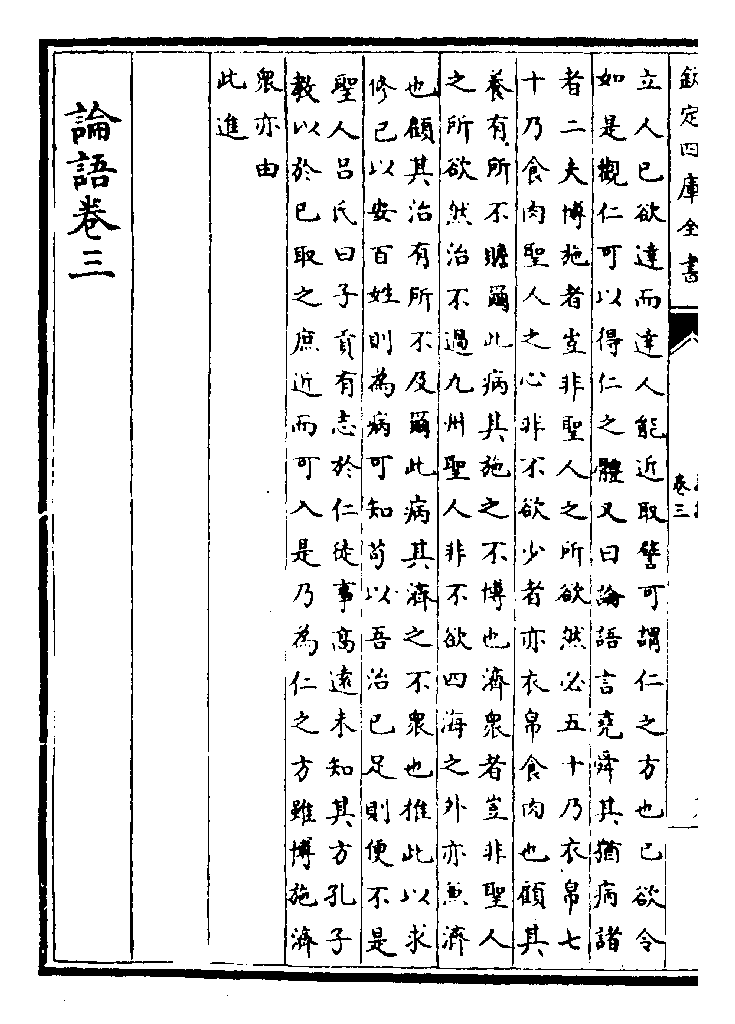 欽定四庫全書
卷三
立人已欲達而達人能近取譬可謂仁之方也已欲令
如是觀仁可以得仁之體又曰論語言堯舜其猶病諸
者二夫博施者豈非聖人之所欲然必五十乃衣帛七
十乃食肉聖人之心非不欲少者亦衣帛食肉也顧其
養有所不贍爾此病其施之不博也濟衆者豈非聖人
之所欲然治不過九州聖人非不欲四海之外亦兼濟
也顧其治有所不及爾此病其濟之不衆也推此以求
修已以安百姓則為病可知苟以吾治已足則便不是
聖人吕氏曰子貢有志於仁徒事高遠未知其方孔子
教以於已取之庶近而可入是乃為仁之方雖博施濟
衆亦由
此進
論語卷三